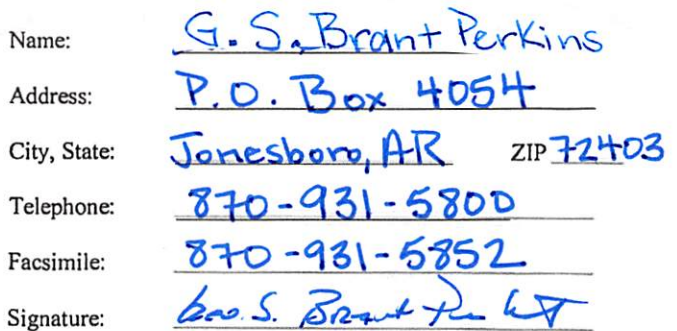 Name: G. S. Brant Perkins
Address: P.O. Box 4054
City, State: Jonesboro, AR ZIP 72403
Telephone: 870-931-5800
Facsimile: 870-931-5852
Signature: Geo. S. Brant